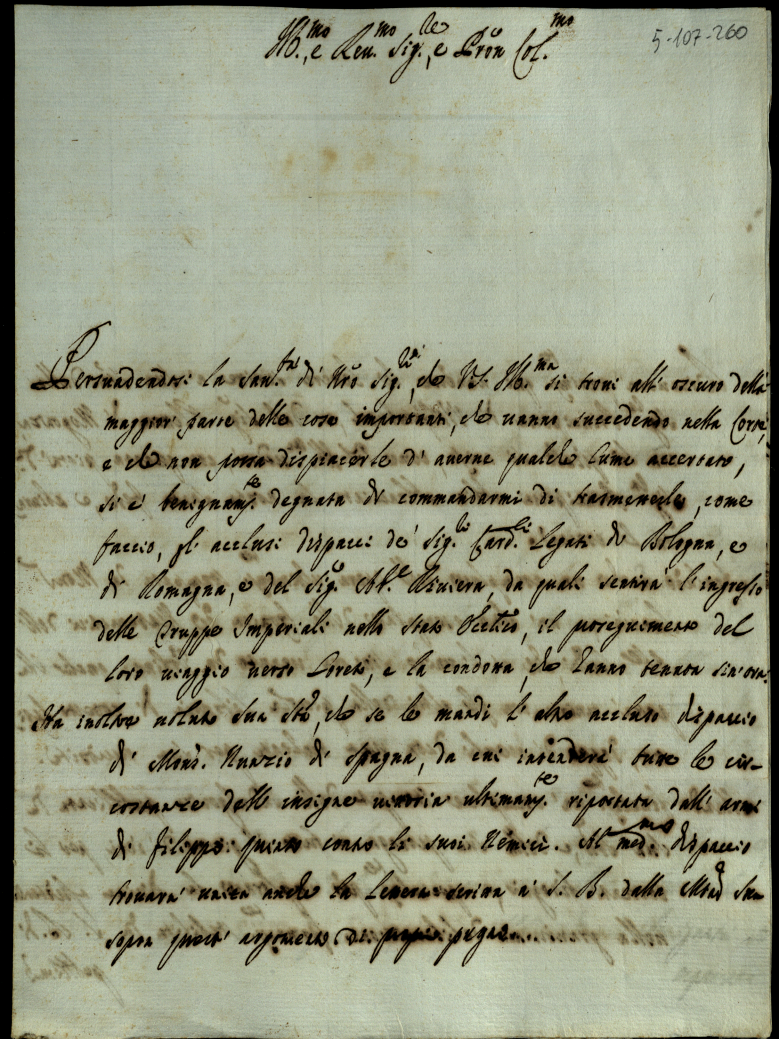 Ill.mo, e Reu.mo Sig.re, e Pron Col.mo
5-107-260
Persuadendosi la San.tà di Nro Sig.re, che VS. Ill.ma si troui all' oscuro della
maggior parte delle cose importanti, che uanno succedendo nella Corte,
e che non possa dispiacerle d' auerne qualche lume accertato,
si è benignam.te degnata di commandarmi di trasmetterle, come
faccio, gl' acclusi dispacci de' Sig.ri Card.li Legati di Bologna, e
di Romagna, e del Sig.r Ab.e Riuiera, da quali sentirà l' ingresso
delle Truppe Imperiali nello stato Eccl.ico, il proseguimento del
loro uiaggio uerso Loreto, e la condotta, che hanno tenuta sin' ora.
Ha inoltre uoluto Sua Stà, che se le mandi l' altro accluso dispaccio
di Mons. Nunzio di Spagna, da cui intenderà tutte le cir-
costanze dell' insigne uittoria ultimam.te riportata dall' armi
di Filippo quinto contro li suoi Nemici. Al med.mo dispaccio
trouarà unita anche la lettera scritta a S. B. dalla Mtà Sua
sopra quest' argomento di